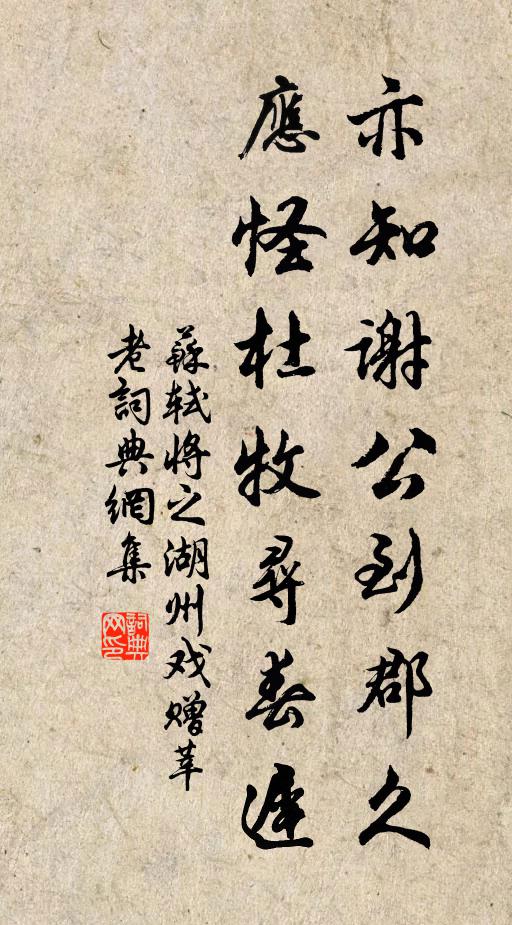 亦知謝公到郡久
應怪杜牧尋春遲
蘇軾將之湖州戏赠莘
老詞典網集
詞典
网印